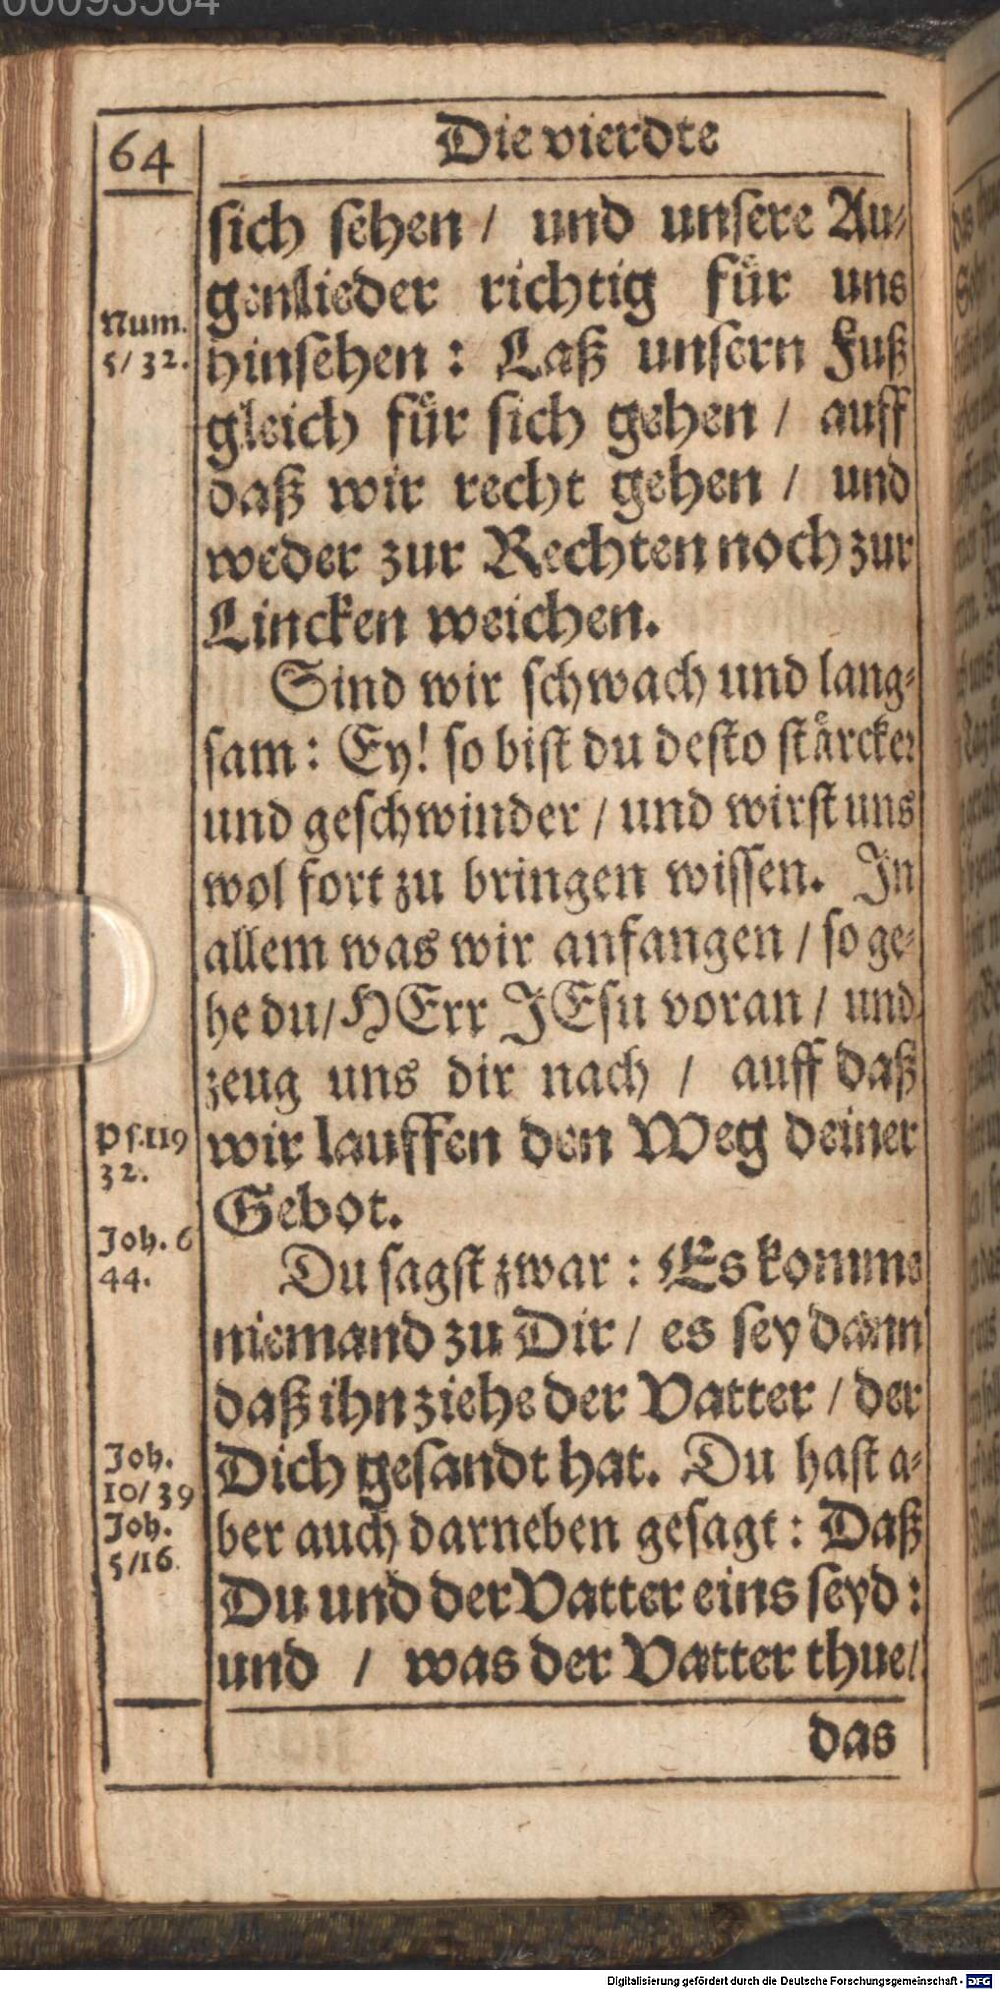 64
Die vierdte
sich sehen / und unsere Au-
genlieder richtig für uns
Num.
5/32.
hinsehen: Laß unsern Fuß
gleich für sich gehen / auff
daß wir recht gehen / und
weder zur Rechten noch zur
Lincken weichen.
Sind wir schwach und lang-
sam: Ey! so bist du desto stärcker
und geschwinder / und wirst uns
wol fort zu bringen wissen. In
allem was wir anfangen / so ge-
he du / HErr JEsu voran / und
zeug uns dir nach / auff daß
Ps.119
32.
wir lauffen den Weg deiner
Gebot.
Joh. 6
44.
Du sagst zwar: Es komme
niemand zu Dir / es sey dann
daß ihn ziehe der Vatter / der
Joh.
10/39
Dich gesandt hat. Du hast a-
Joh.
5/16.
ber auch darneben gesagt: Daß
Du und der Vatter eins seyd:
und / was der Vatter thue /
das
Digitalisierung gefördert durch die Deutsche Forschungsgemeinschaft - DFG